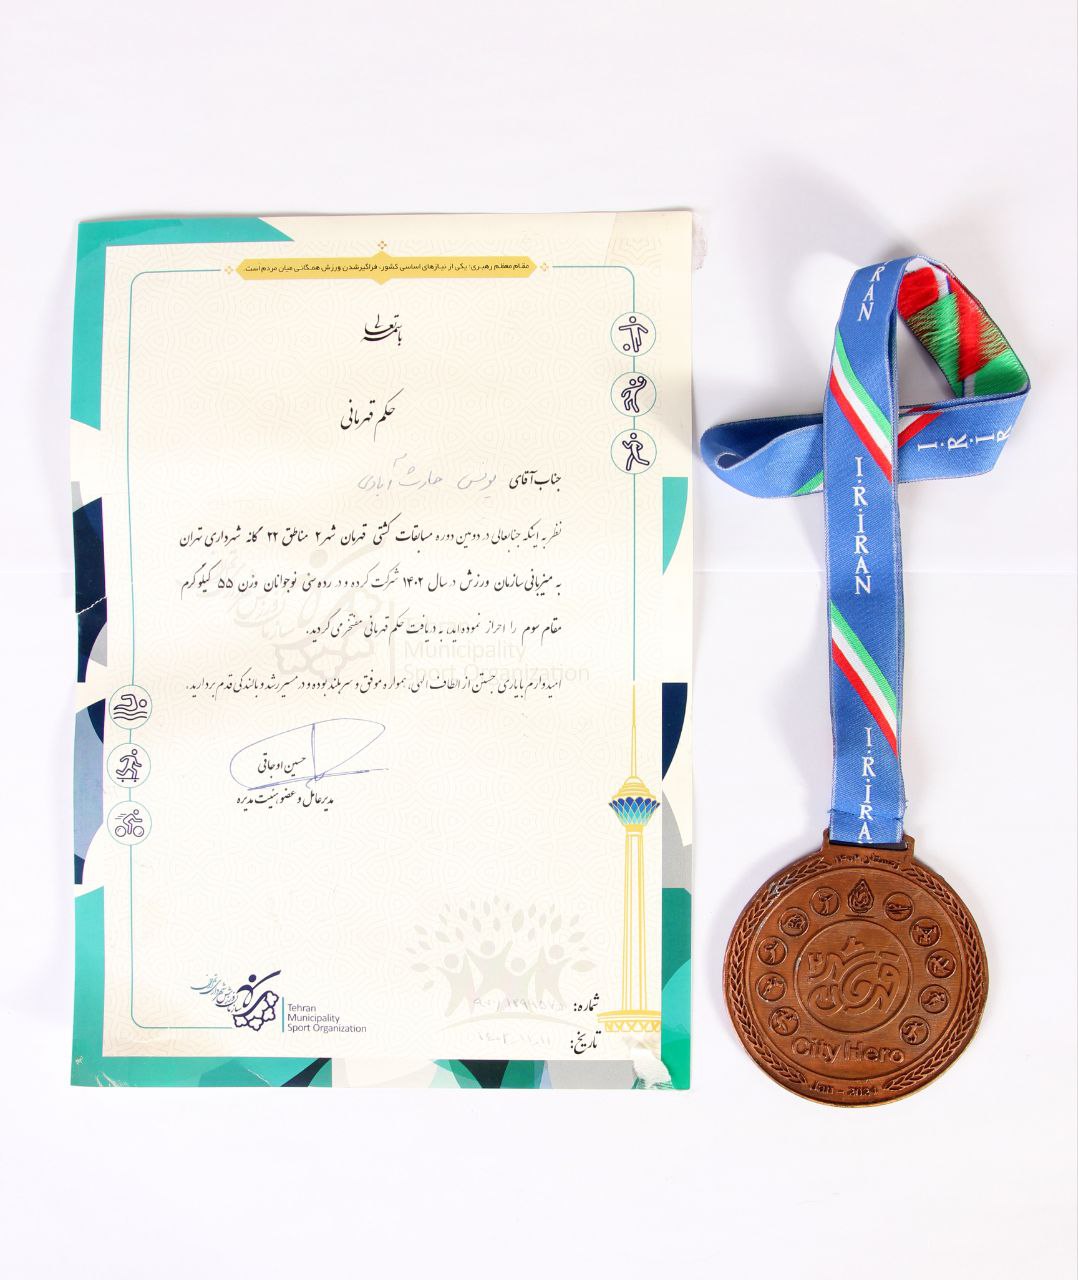 مقام معظم رهبری: یکی از نیازهای اساسی کشور، فراگیرشدن ورزش همگانی میان مردم است.
باسمه تعالی
حکم قهرمانی
جناب آقای یونس حارث آبادی
نظر به اینکه جنابعالی در دومین دوره مسابقات کشتی قهرمان شهر ۲ مناطق ۲۲ گانه شهرداری تهران
به میزبانی سازمان ورزش در سال ۱۴۰۲ شرکت کرده و در رده سنی نوجوانان وزن ۵۵ کیلوگرم
مقام سوم را احراز نموده اید، به دریافت حکم قهرمانی مفتخر می گردید.
امیدوارم با یاری جستن از الطاف الهی، همواره موفق و سربلند بوده و در مسیر رشد و بالندگی قدم بردارید.
حسین اوجاقی
مدیرعامل و عضو هیئت مدیره
Municipality
Sport Organization
Tehran
Municipality
Sport Organization
شماره:
تاریخ:
RAN
I.R.IR
I.R.IRAN
I.R.IRA
زمستان ۱۴۰۲
City Hero
Jan - 2024